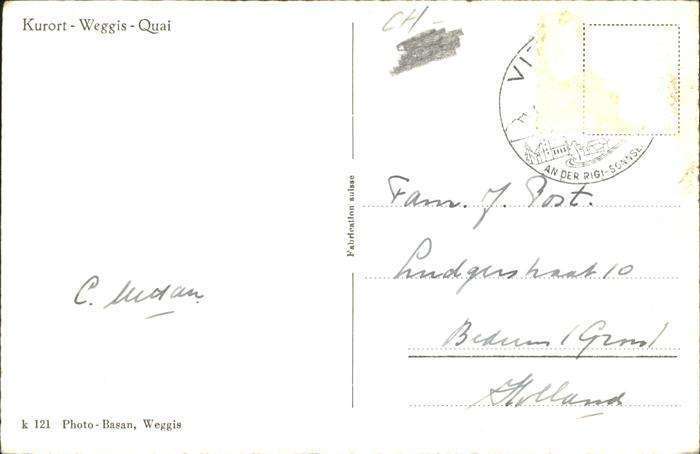 Kurort - Weggis - Quai
CH-
VI-
AN DER RIGI-SONNSE
Fabrication suisse
Fam. J. Post.
Ludgerstraat 10
Bedum (Gron)
Holland
C.
k 121 Photo-Basan, Weggis